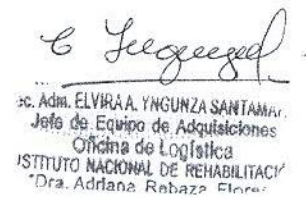 ec. Adm. ELVIRA A. YNGUNZA SANTAMAR
Jefe de Equipo de Adquisiciones
Oficina de Logística
ISTITUTO NACIONAL DE REHABILITACIÓ
"Dra. Adriana Rebaza Flores